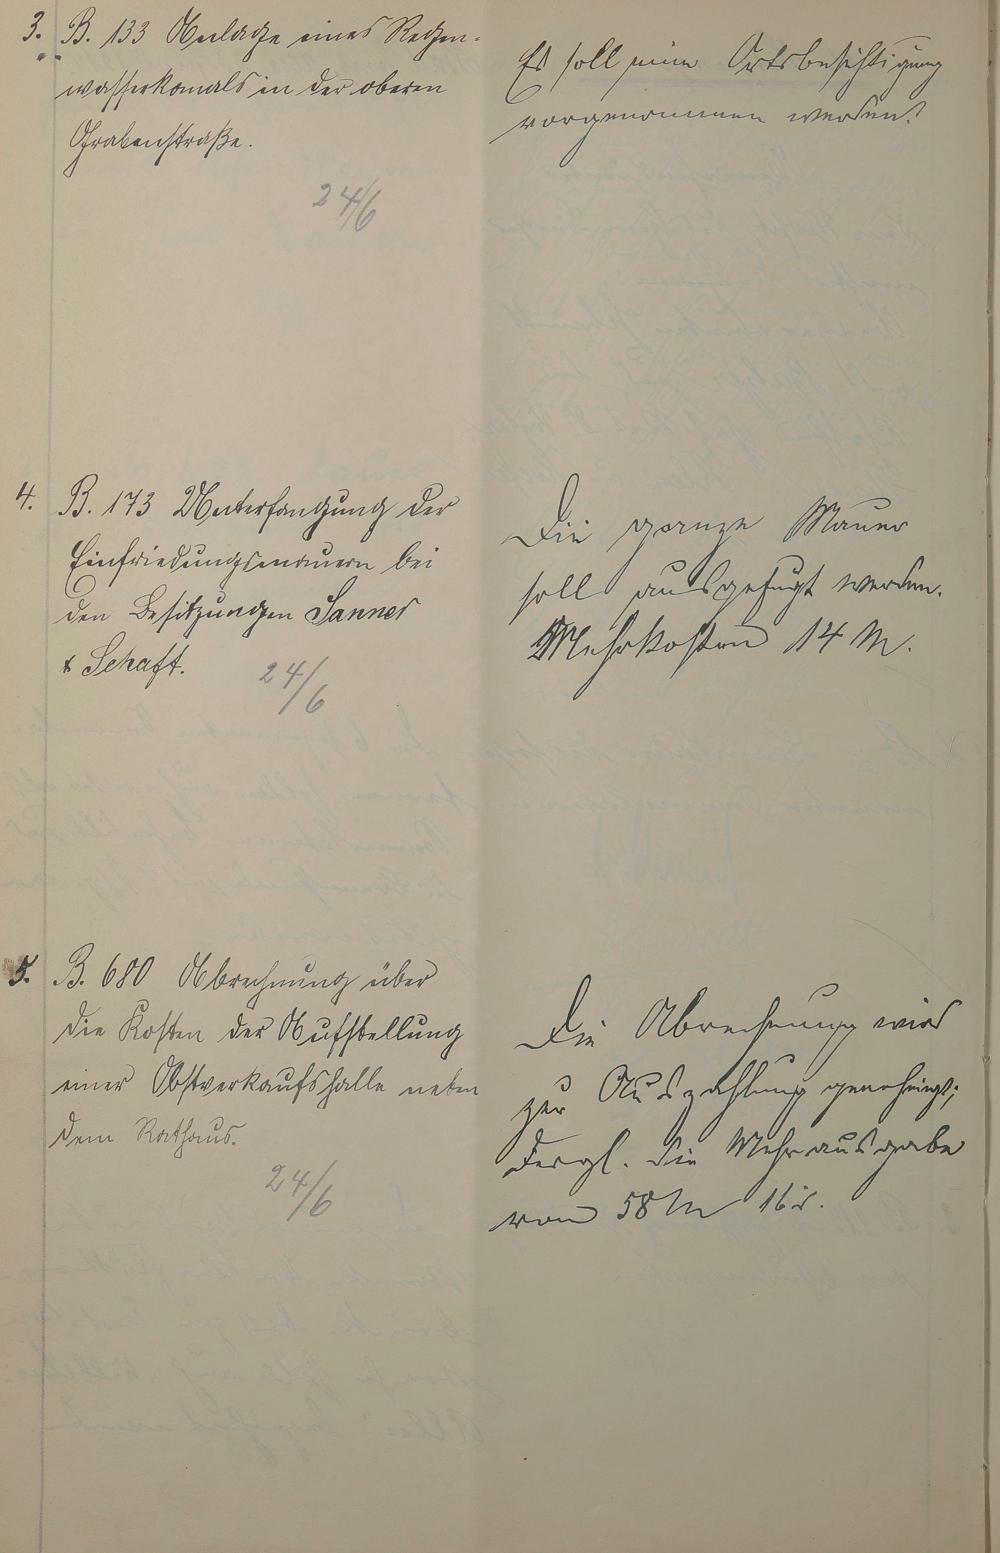 3. B. 133 Anlage eines Regen-
wasserkanals in der oberen
Grabenstraße.
24/6
Es soll eine Ortsbesichtigung
vorgenommen werden.
4. B. 173 Unterfangung der
Einfriedungsmauern bei
den Besitzungen Sanner
& Schaft.
24/6
Die ganze Mauer
soll ausgefugt werden.
Mehrkosten 14 M.
5. B. 680 Abrechnung über
die Kosten der Aufstellung
einer Obstverkaufshalle neben
dem Rathaus.
24/6
Die Abrechnung wird
zur Auszahlung genehmigt;
dergl. die Mehrausgabe
von 58 M 16 d.